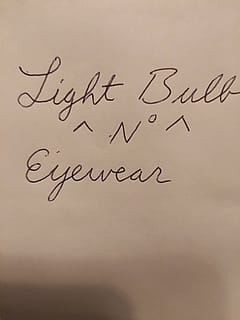 Light Bulb
^ .N° ^
Eyewear